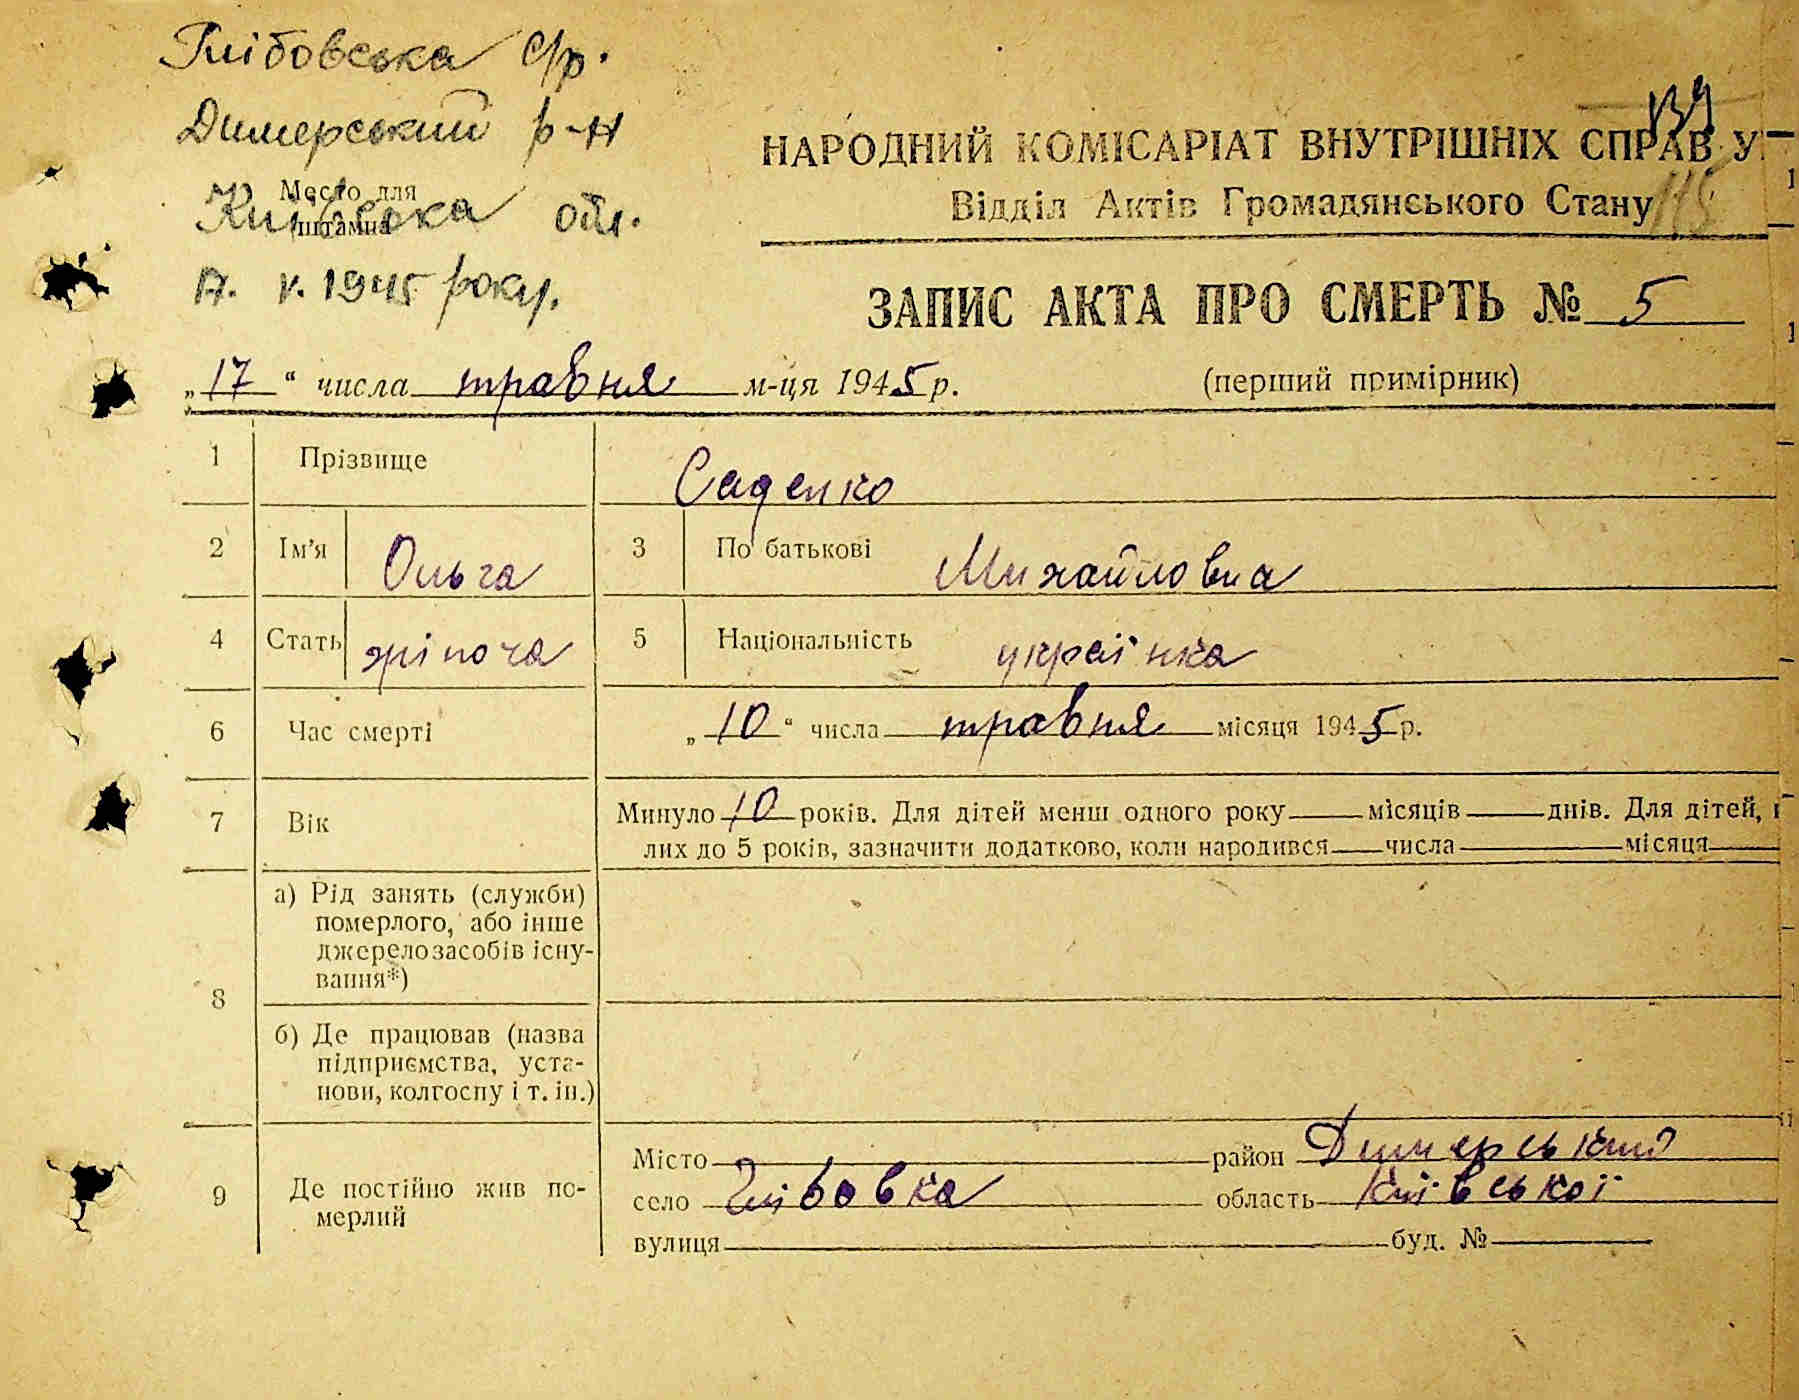 Глібовська с/р.
Димерський р-н
Место для
штампа
Київська обл.
17. V. 1945 року.
139
НАРОДНИЙ КОМІСАРІАТ ВНУТРІШНІХ СПРАВ У
Відділ Актів Громадянського Стану
115
ЗАПИС АКТА ПРО СМЕРТЬ № 5
„17“ числа травня м-ця 1945 р.
(перший примірник)
1 Прізвище Саденко
2 Ім’я Ольга 3 По батькові Михайловна
4 Стать жіноча 5 Національність українка
6 Час смерті „10“ числа травня місяця 1945 р.
7 Вік Минуло 10 років. Для дітей менш одного року місяців днів. Для дітей,
лих до 5 років, зазначити додатково, коли народився числа місяця
8 а) Рід занять (служби)
померлого, або інше
джерело засобів існу-
вання*)
б) Де працював (назва
підприємства, уста-
нови, колгоспу і т. ін.)
9 Де постійно жив по-
мерлий
Місто район Димерський
село Глібовка область Київської
вулиця буд. №